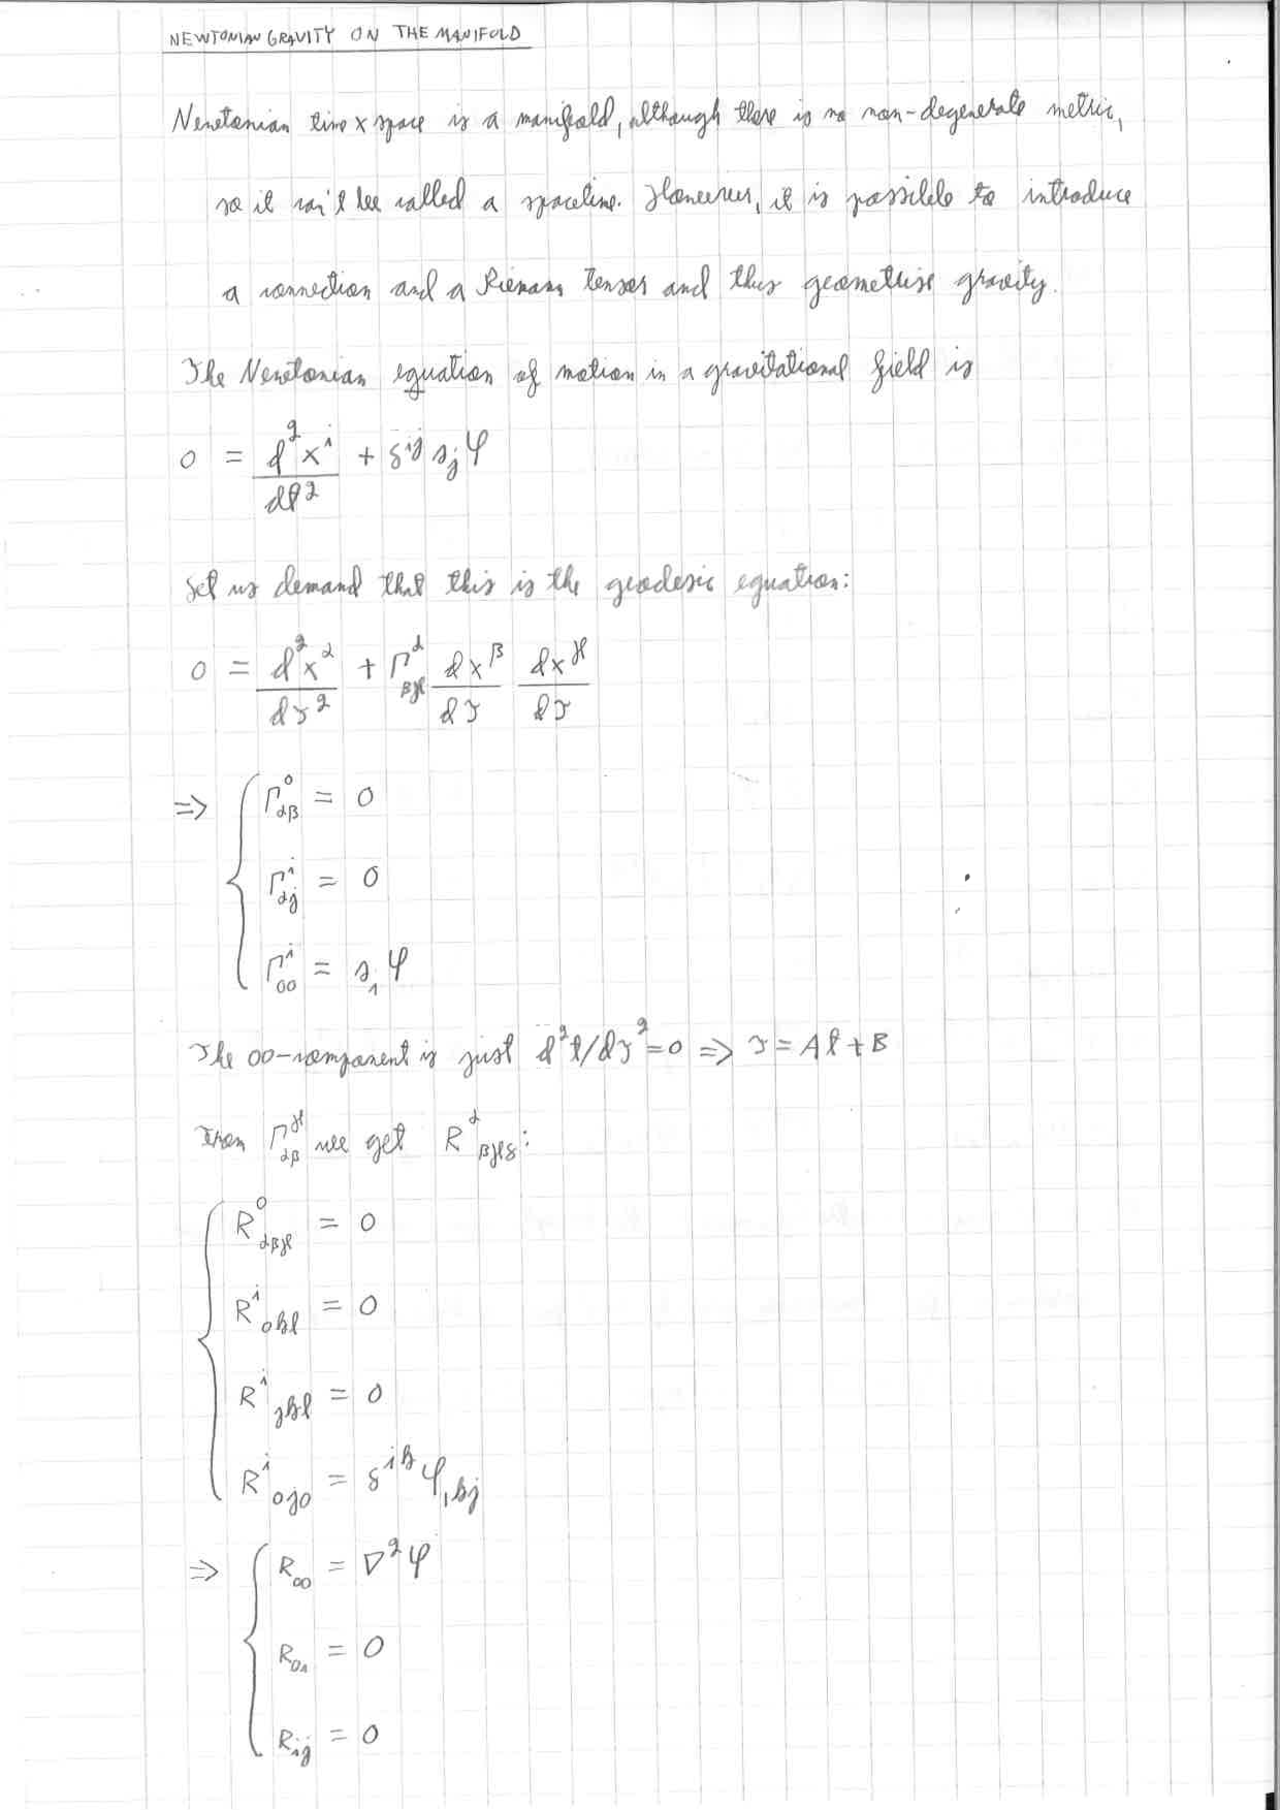 NEWTONIAN GRAVITY ON THE MANIFOLD
Newtonian time × space is a manifold, although there is no non-degenerate metric,
so it can't be called a spacetime. However, it is possible to introduce
a connection and a Riemann tensor and thus geometrise gravity.
The Newtonian equation of motion in a gravitational field is
0 = d²xⁱ/dt² + δⁱʲ ∂ⱼφ
Let us demand that this is the geodesic equation:
0 = d²x^α/dτ² + Γ^α_βγ dx^β/dτ dx^γ/dτ
⇒ { Γ^0_αβ = 0
Γ^i_αj = 0
Γ^i_00 = ∂_i φ
The 00-component is just d²t/dτ² = 0 ⇒ τ = At + B
From Γ^γ_αβ we get R^α_βγδ:
{ R^0_αβγ = 0
R^i_0kl = 0
R^i_jkl = 0
R^i_0j0 = δ^ik φ_,kj
⇒ { R_00 = ∇²φ
R_0i = 0
R_ij = 0